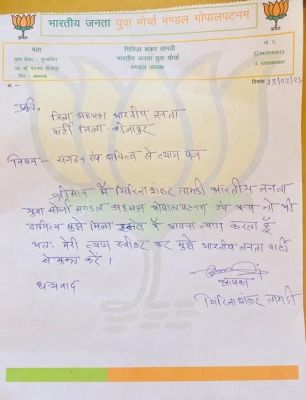 भारतीय जनता युवा मोर्चा मण्डल भोपालपटनम
पता
गिरिजा शंकर तामडी
भारतीय जनता युवा मोर्चा
मण्डल अध्यक्ष
मो. नं.
दिनांक 13/02/23
प्रति,
जिला अध्यक्ष भारतीय जनता
पार्टी जिला - बीजापुर
विषय - संगठन एवं दायित्व से त्याग पत्र
श्रीमान मैं गिरिजाशंकर तामडी भारतीय जनता
युवा मोर्चा मण्डल अध्यक्ष भोपालपटनम एवं अन्य जो भी
दायित्व मुझे मिला उसका मैं अपना त्याग करता हूँ
अतः मेरी त्याग स्वीकार कर मुझे भारतीय जनता पार्टी
से मुक्त करें।
धन्यवाद
आपका
गिरिजाशंकर तामडी